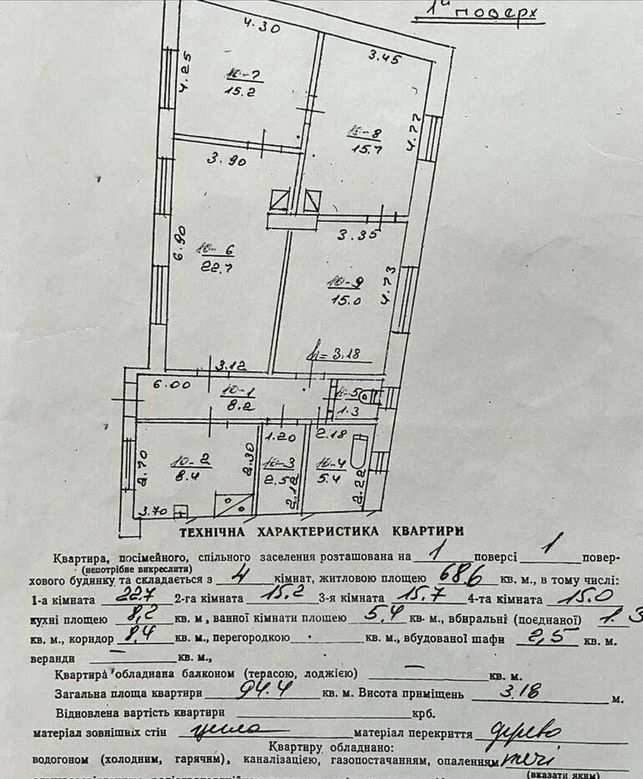 1й поверх
4.30
4.25
10-7
15.2
3.45
10-8
15.7
4.77
3.90
6.90
10-6
22.7
3.35
10-9
15.0
4.73
h=3.18
3.12
6.00
10-1
8.2
10-5
1.3
1.20
2.18
2.70
10-2
8.4
2.30
10-3
2.52
2.12
10-4
5.4
2.22
3.70
ТЕХНІЧНА ХАРАКТЕРИСТИКА КВАРТИРИ
Квартира, посімейного, спільного заселення розташована на 1 поверсі 1 повер-
(непотрібне викреслити)
хового будинку та складається з 4 кімнат, житловою площею 68.6 кв. м., в тому числі:
1-а кімната 22.7 2-га кімната 15.2 3-я кімната 15.7 4-та кімната 15.0
кухні площею 8,2 кв. м, ванної кімнати площею 5,4 кв. м, вбиральні (поєднаної) 1.3
кв. м., коридор 8,4 кв. м., перегородкою кв. м., вбудованої шафи 2,5 кв. м.
веранди — кв. м.,
Квартира обладнана балконом (терасою, лоджією) — кв. м.
Загальна площа квартири 94.4 кв. м. Висота приміщень 3.18 м.
Відновлена вартість квартири крб.
матеріал зовнішніх стін цегла матеріал перекриття дерево
Квартиру обладнано:
водогоном (холодним, гарячим), каналізацією, газопостачанням, опаленням печі
(вказати яким)